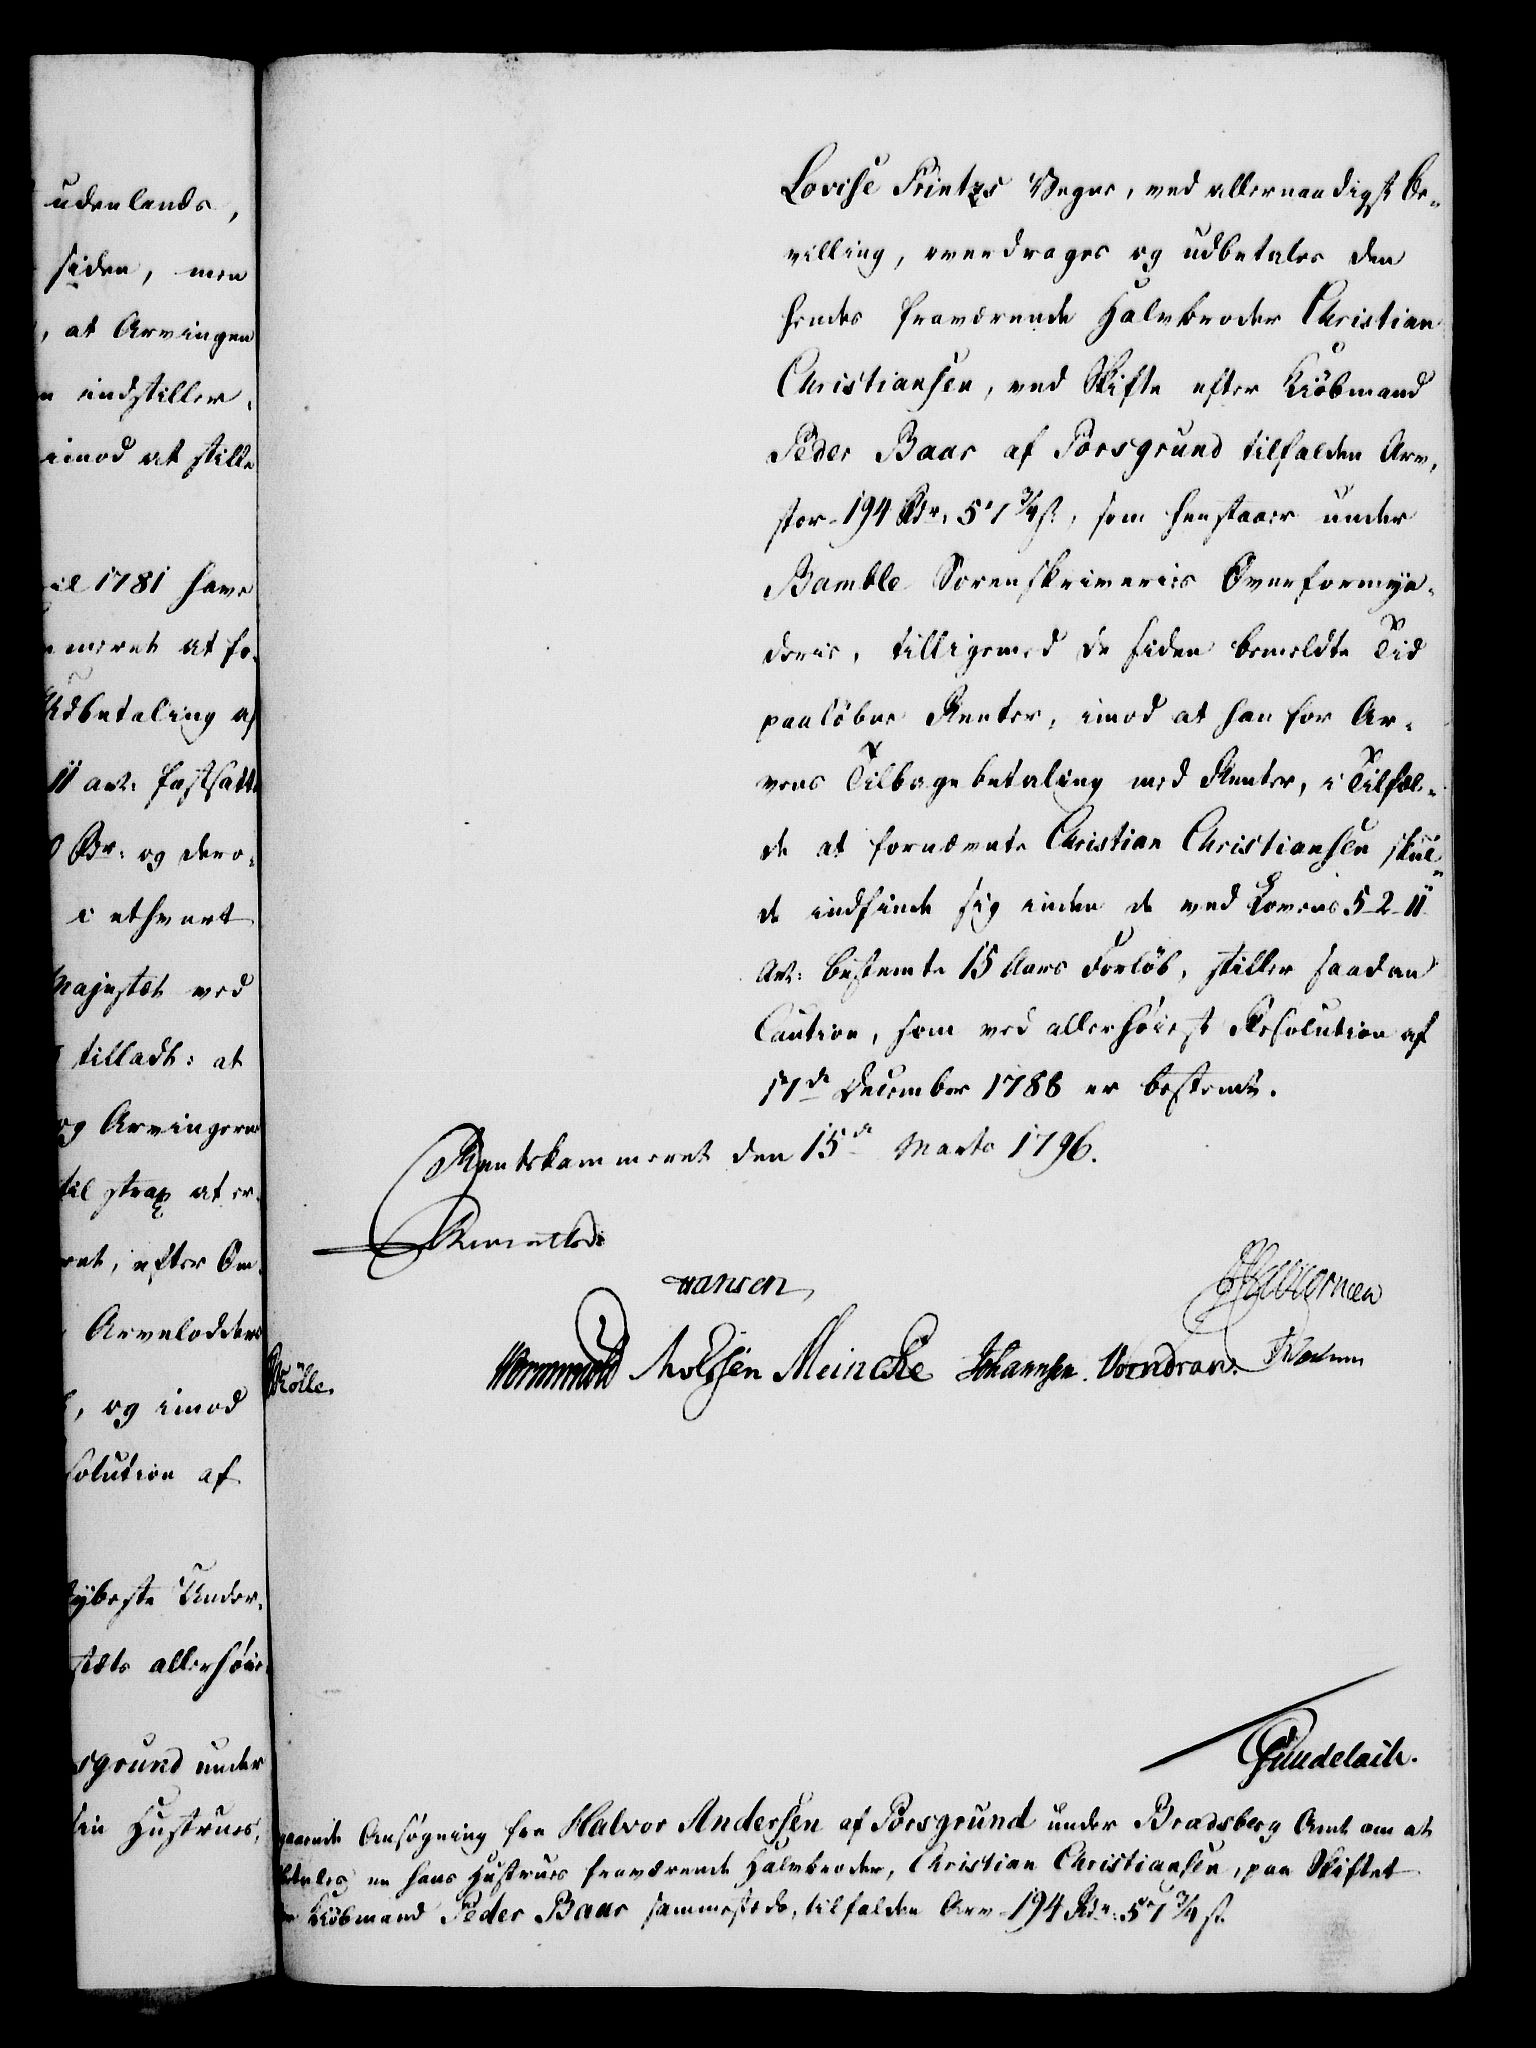 udenlands,
siden, men
, at Arvingen
indstiller,
imod at stille
il 1781 have
meret at fo-
Udbetaling af
11 art: fastsatte
Rdr: og dero-
i ethvert
Majestæt ved
tilladt: at
og Arvingerne
til strax at er-
ret, efter Om-
Arvelodders
, og imod
solution af
dybeste Under-
stæts allerhöie-
sgrund under
sin Hustrues,
Lovise Printzs Vegne, ved allernaadigst Be-
villing, overdrages og udbetales den
hendes fraværende Halvbroder Christian
Christiansen, ved Skifte efter Kiöbmand
Peder Baar af Porsgrund tilfalden Arv,
stor 194 Rdr. 57 3/4 s., som henstaaer under
Bamble Sorenskriveries Overformyn-
derie, tilligemed de siden bemeldte Tid
paalöbne Renter, imod at han for Ar-
vens Tilbagebetaling med Renter, i Tilfæl-
de at fornævnte Christian Christiansen skul-
de indfinde sig inden de ved Lovens 5-2-11
Art: bestemte 15 Aars Forlöb, stiller saadan
Caution, som ved allerhöieste Resolution af
17de December 1788 er bestemt.
Rentekammeret den 15de Marts 1796.
Reventlow
Hansen
Wormskiold Meincke Johannsen. Vorndran.
Rölle.
Gundelach.
gaaende Ansögning fra Halvor Andersen af Porsgrund under Bradsberg Amt om at
betales en hans Hustrues fraværende Halvbroder, Christian Christiansen, paa Skiftet
Kiöbmand Peder Baar sammesteds, tilfalden Arv 194 Rdr: 57 3/4 s.